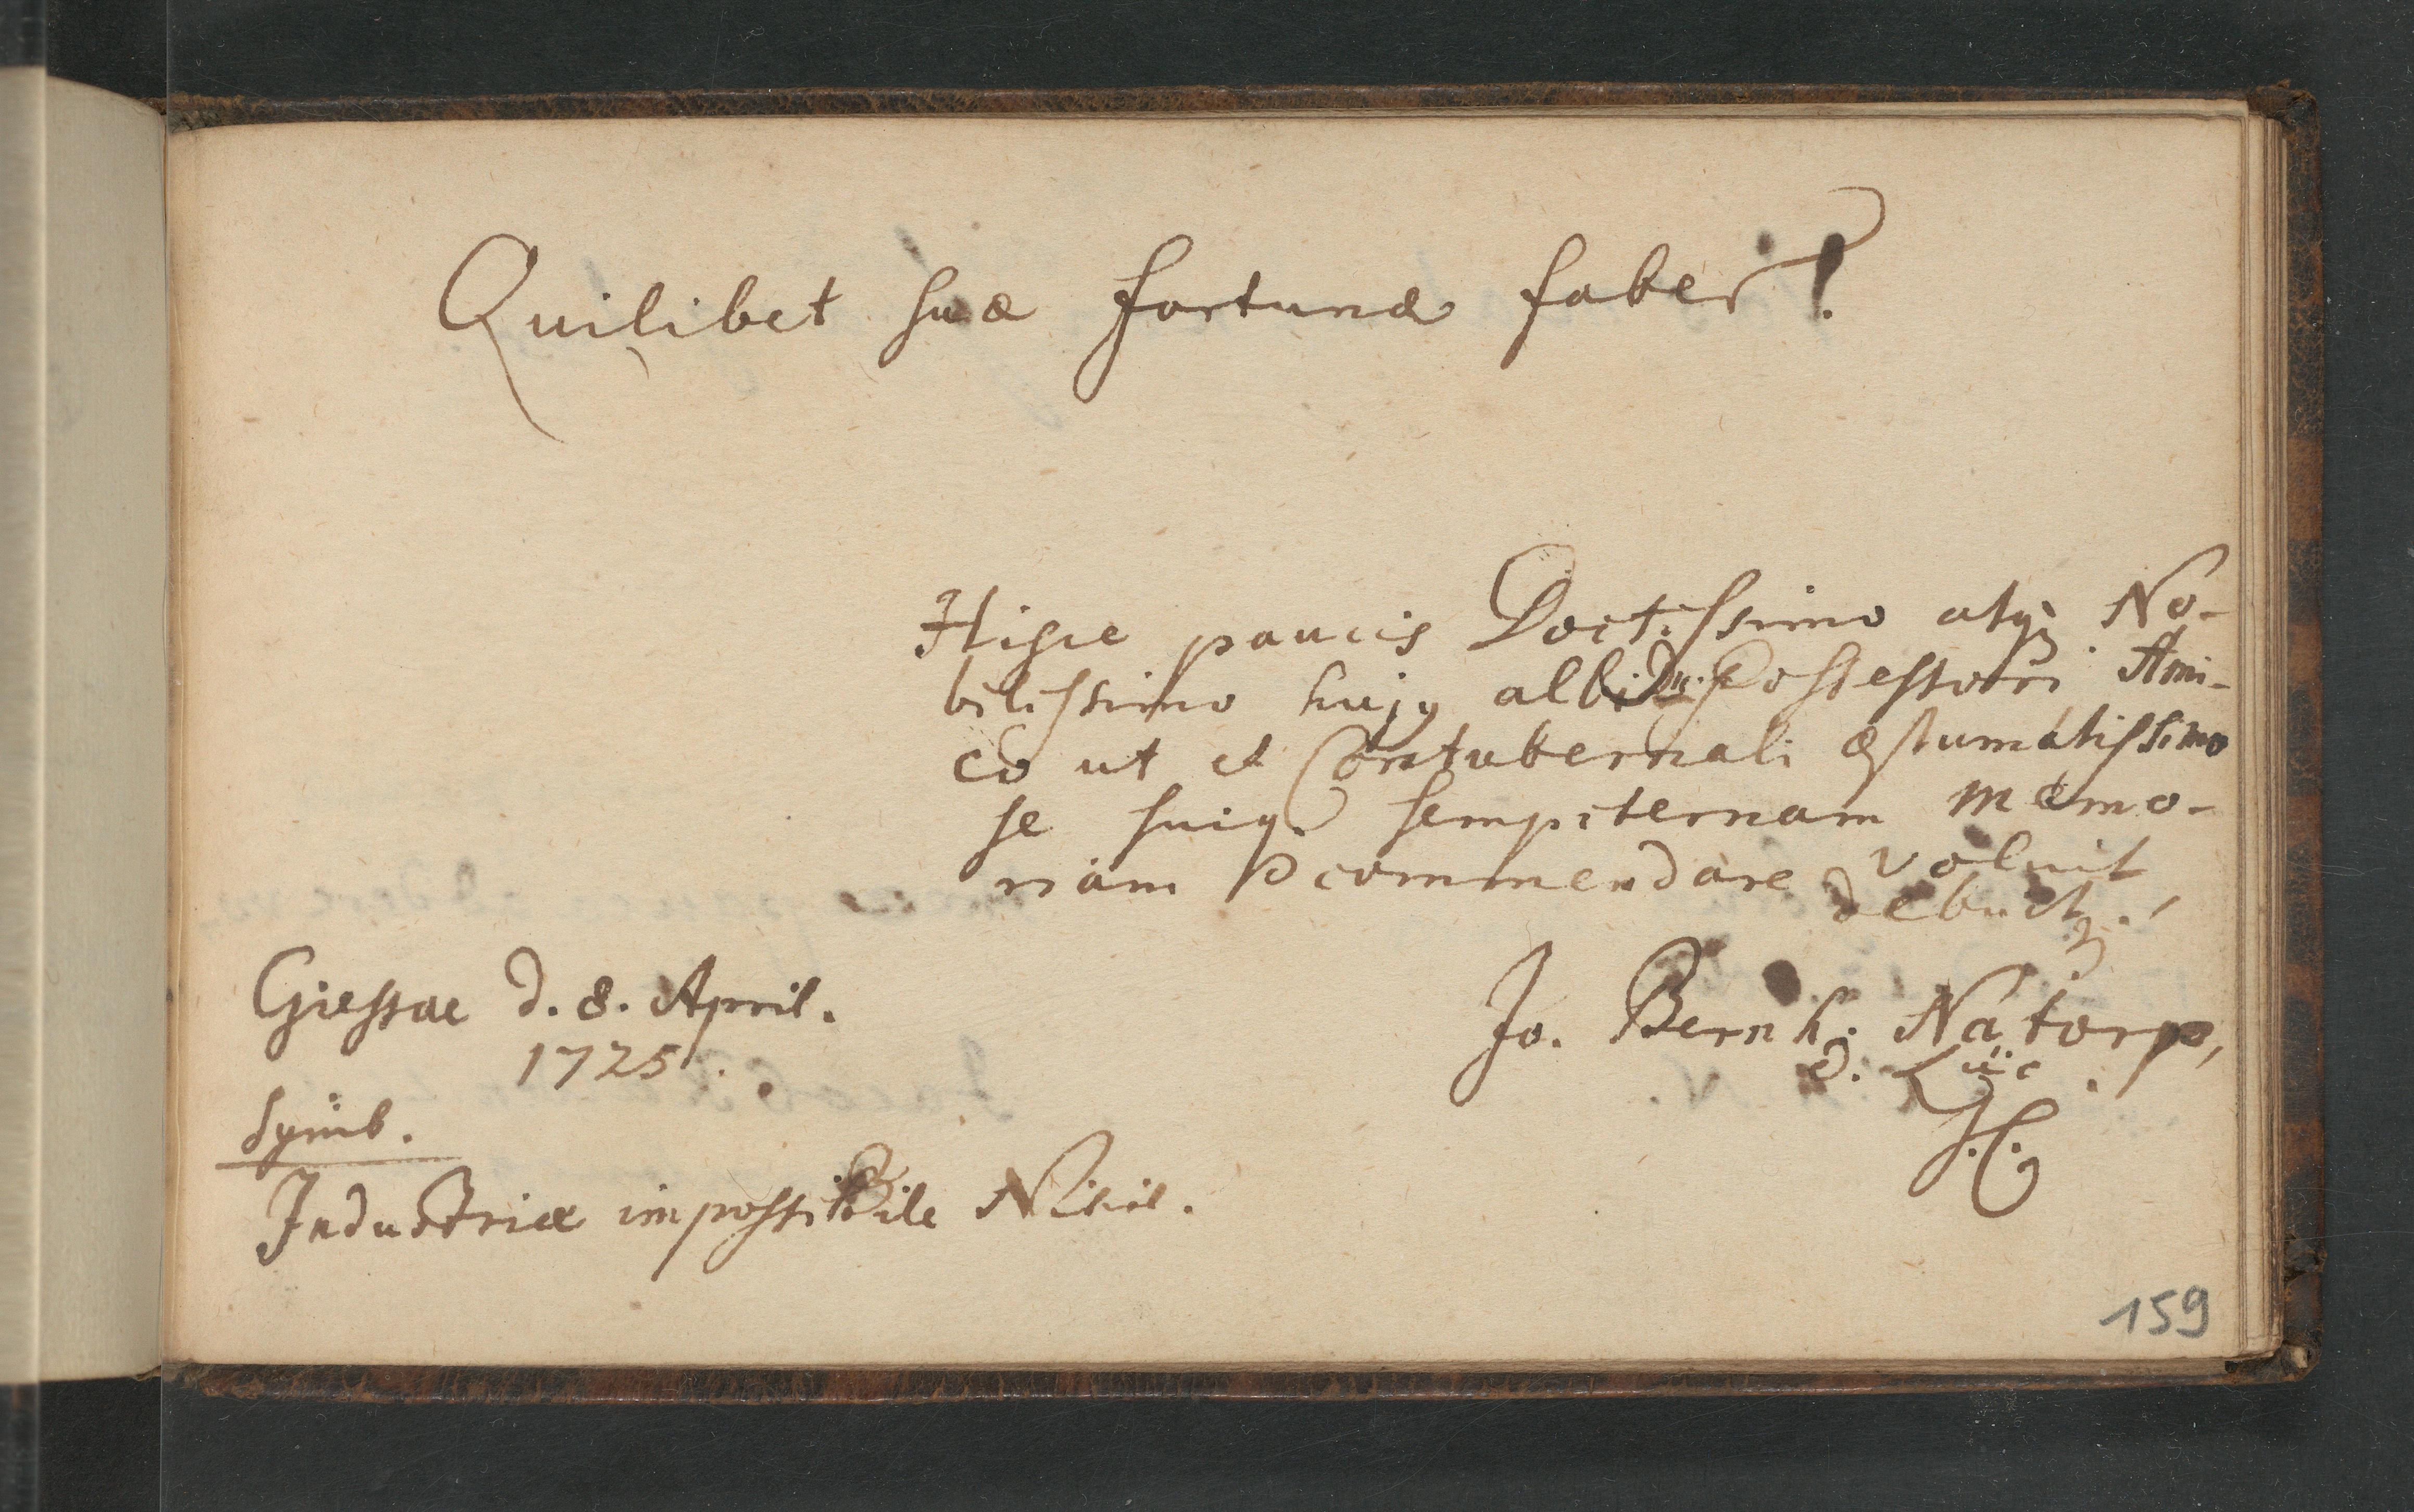 Quilibet suæ fortunæ faber!
Hisce paucis Doctissimo atq; No-
bilissimo hujus albi Possessori Ami-
co ut et Contubernali æstumatissimo
se suiq; sempiternam memo-
riam commendare voluit
debuit!
Giessae d. 8. April.
1725.
Jo. Bernh: Natorp,
Symb.
Industriæ impossibile Nihil.
159